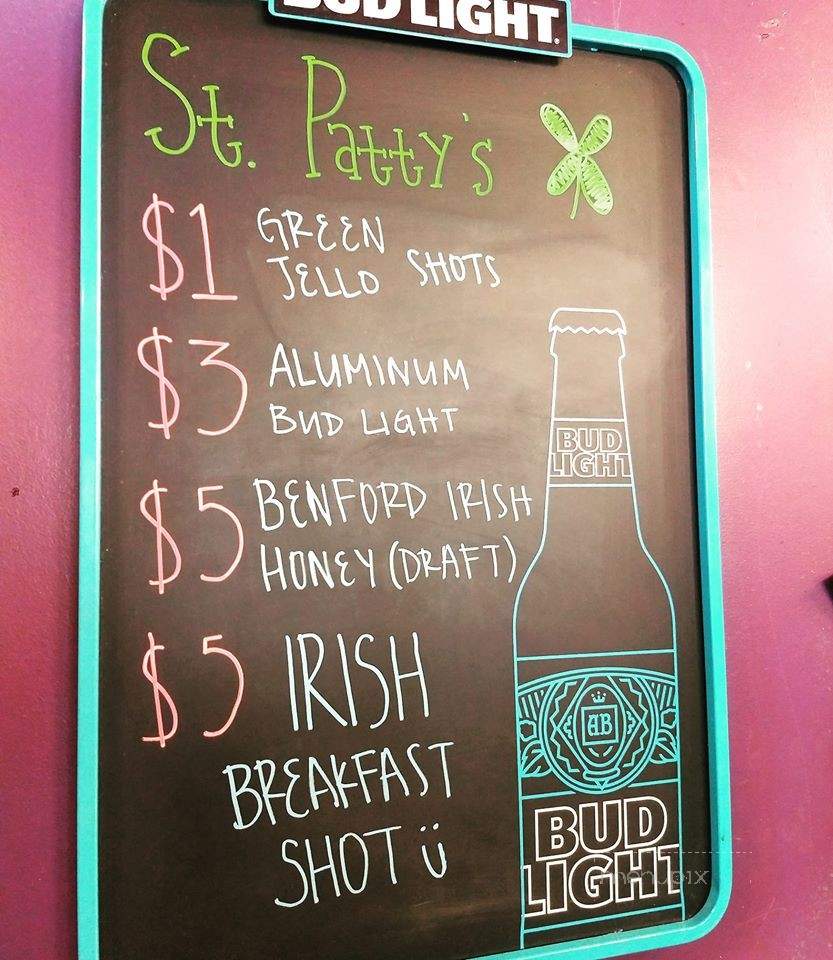 BUD LIGHT
St. Patty's
$1 GREEN
JELLO SHOTS
$3 ALUMINUM
BUD LIGHT
$5 BENFORD IRISH
HONEY (DRAFT)
$5 IRISH
BREAKFAST
SHOT ü
BUD
LIGHT
AB
BUD
LIGHT
menupix